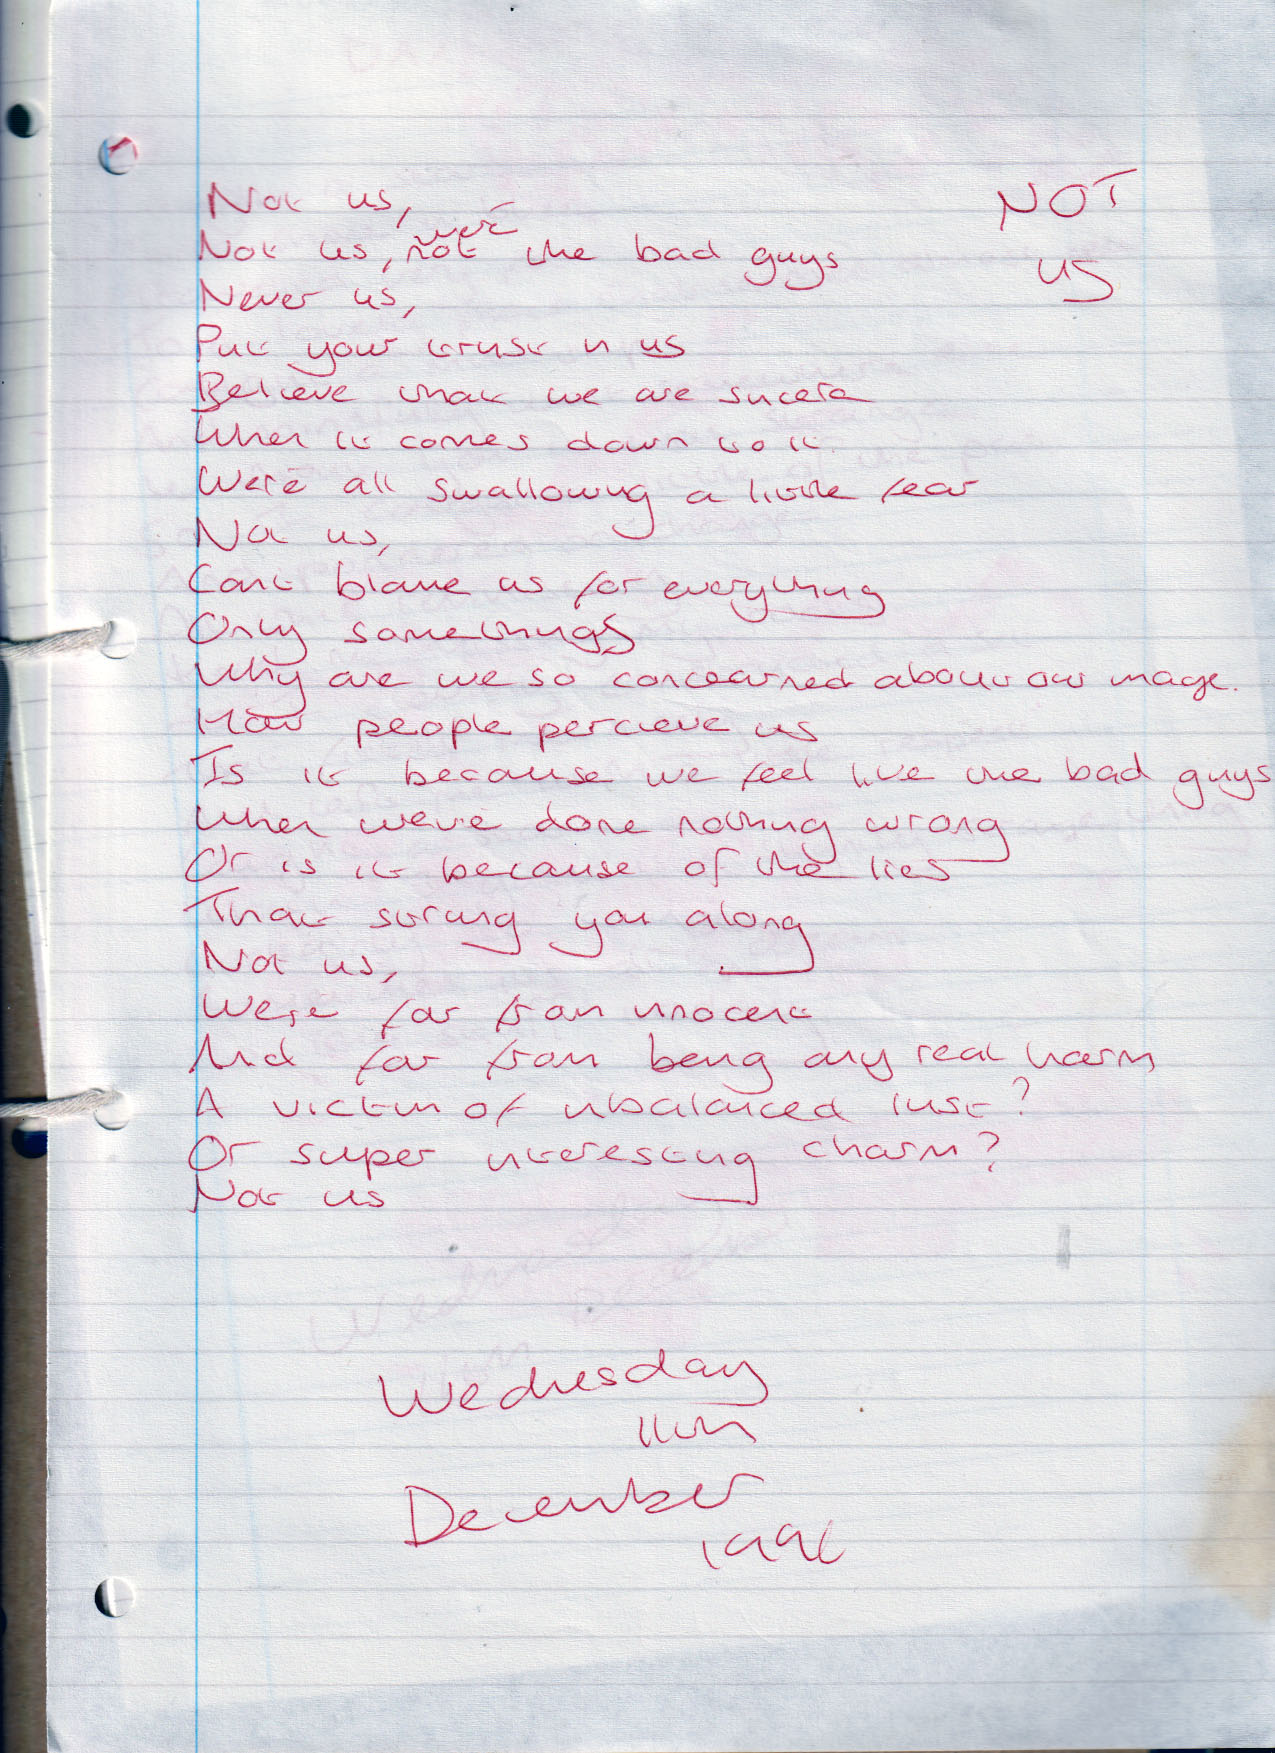 NOT
US
Not us,
Not us, we're not the bad guys
Never us,
Put your trust in us
Believe that we are sincere
When it comes down to it.
We're all swallowing a little fear
Not us,
Cant blame us for everything
Only somethings
Why are we so concearned about our image.
How people percieve us
Is it because we feel like the bad guys
When we've done nothing wrong
Or is it because of the lies
That strung you along
Not us,
We're far from innocent
And far from being any real harm
A victim of unbalanced lust?
Or super interesting charm?
Not us
Wednesday
11th
December
1996